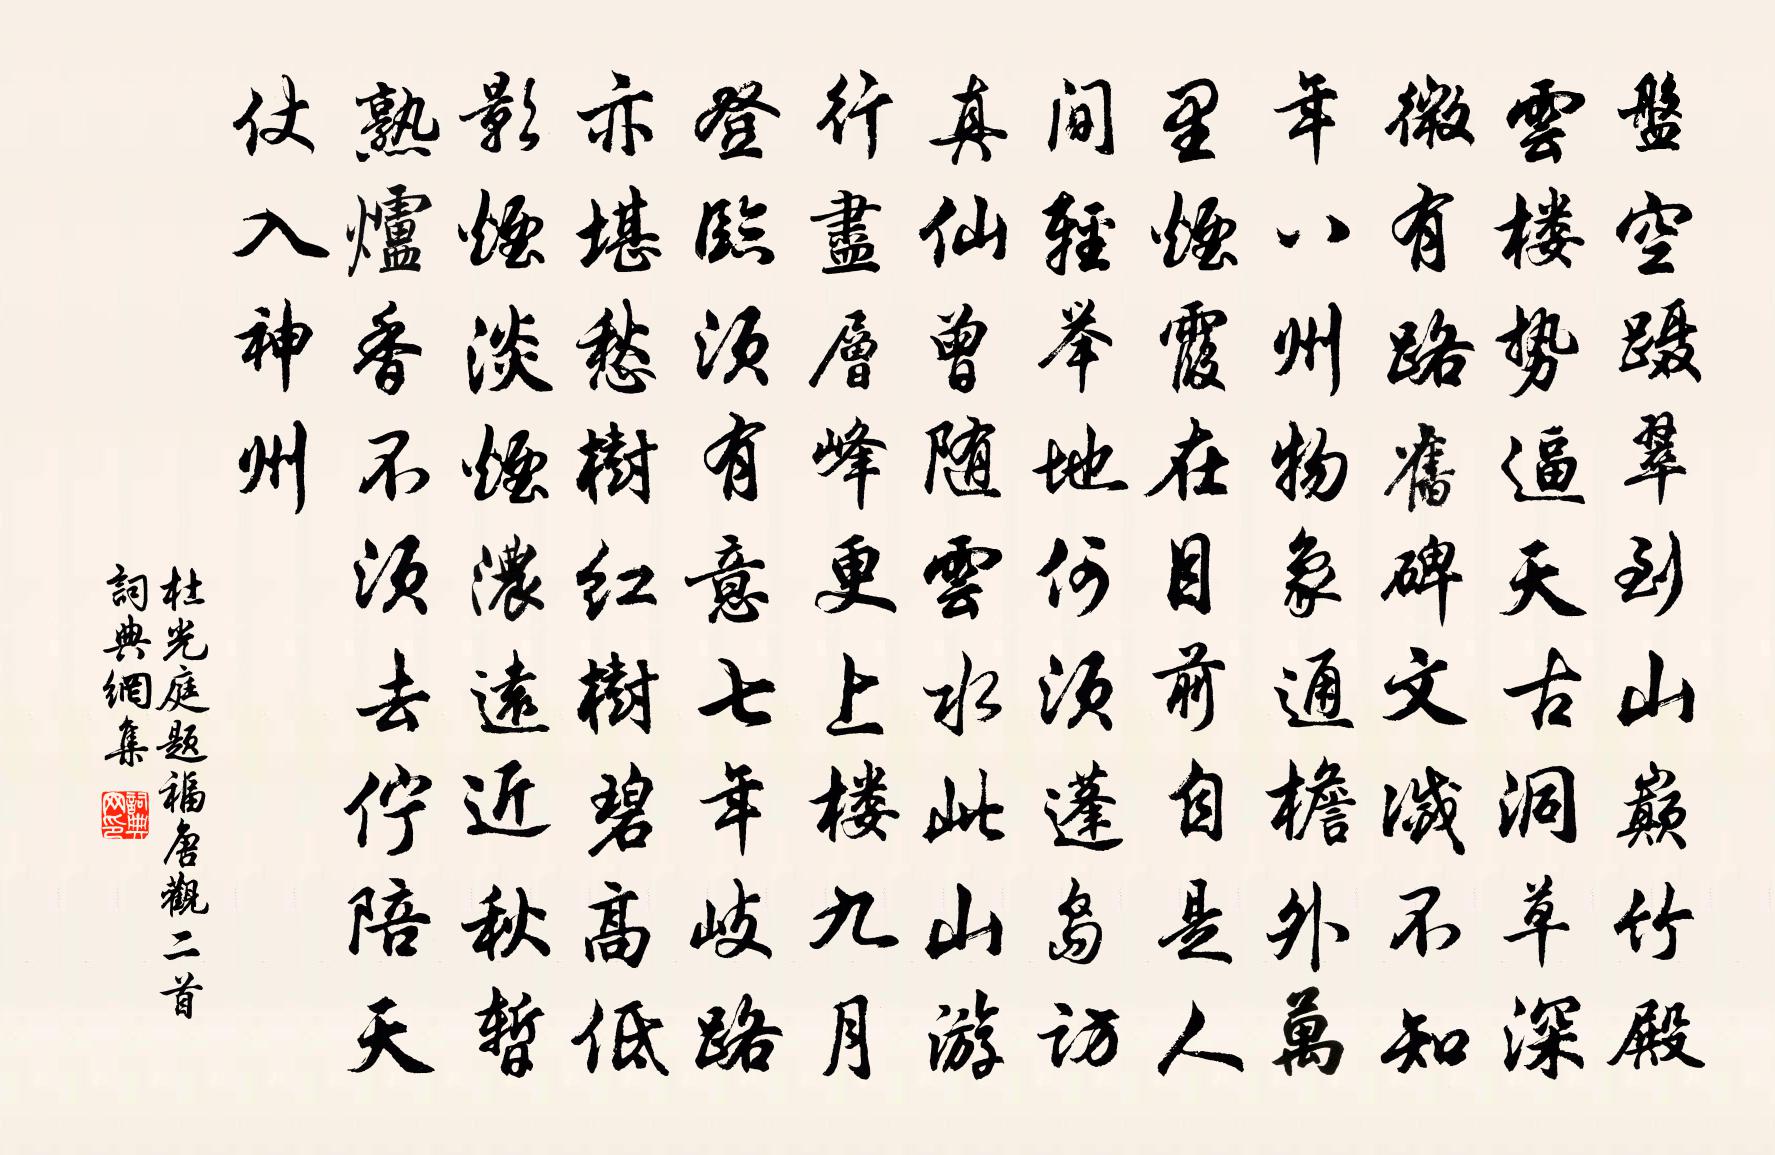 盤空蹑翠到山巔竹殿
雲楼势逼天古洞草深
微有路舊碑文滅不知
年八州物象通檐外萬
里煙霞在目前自是人
间輕举地何须蓬島访
真仙曾随雲水此山游
行盡層峰更上楼九月
登臨须有意七年岐路
亦堪愁樹红樹碧高低
影煙淡煙濃遠近秋暂
熟爐香不须去佇陪天
仗入神州
杜光庭题福唐觀二首
詞典網集
詞典网印